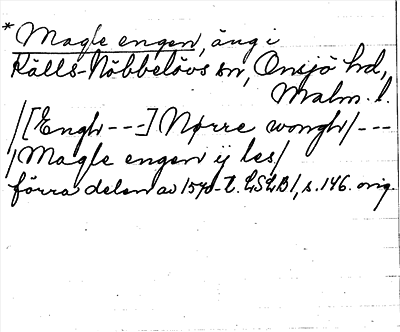 * Magle engen, äng i
Källs-Nöbbelövs sn, Onsjö hd,
Malm. l.
/[Engh---:] Nørre wongh/---
/Magle engen ij les/
förra delen av 1570-t. LSLB 1, s. 146. orig.